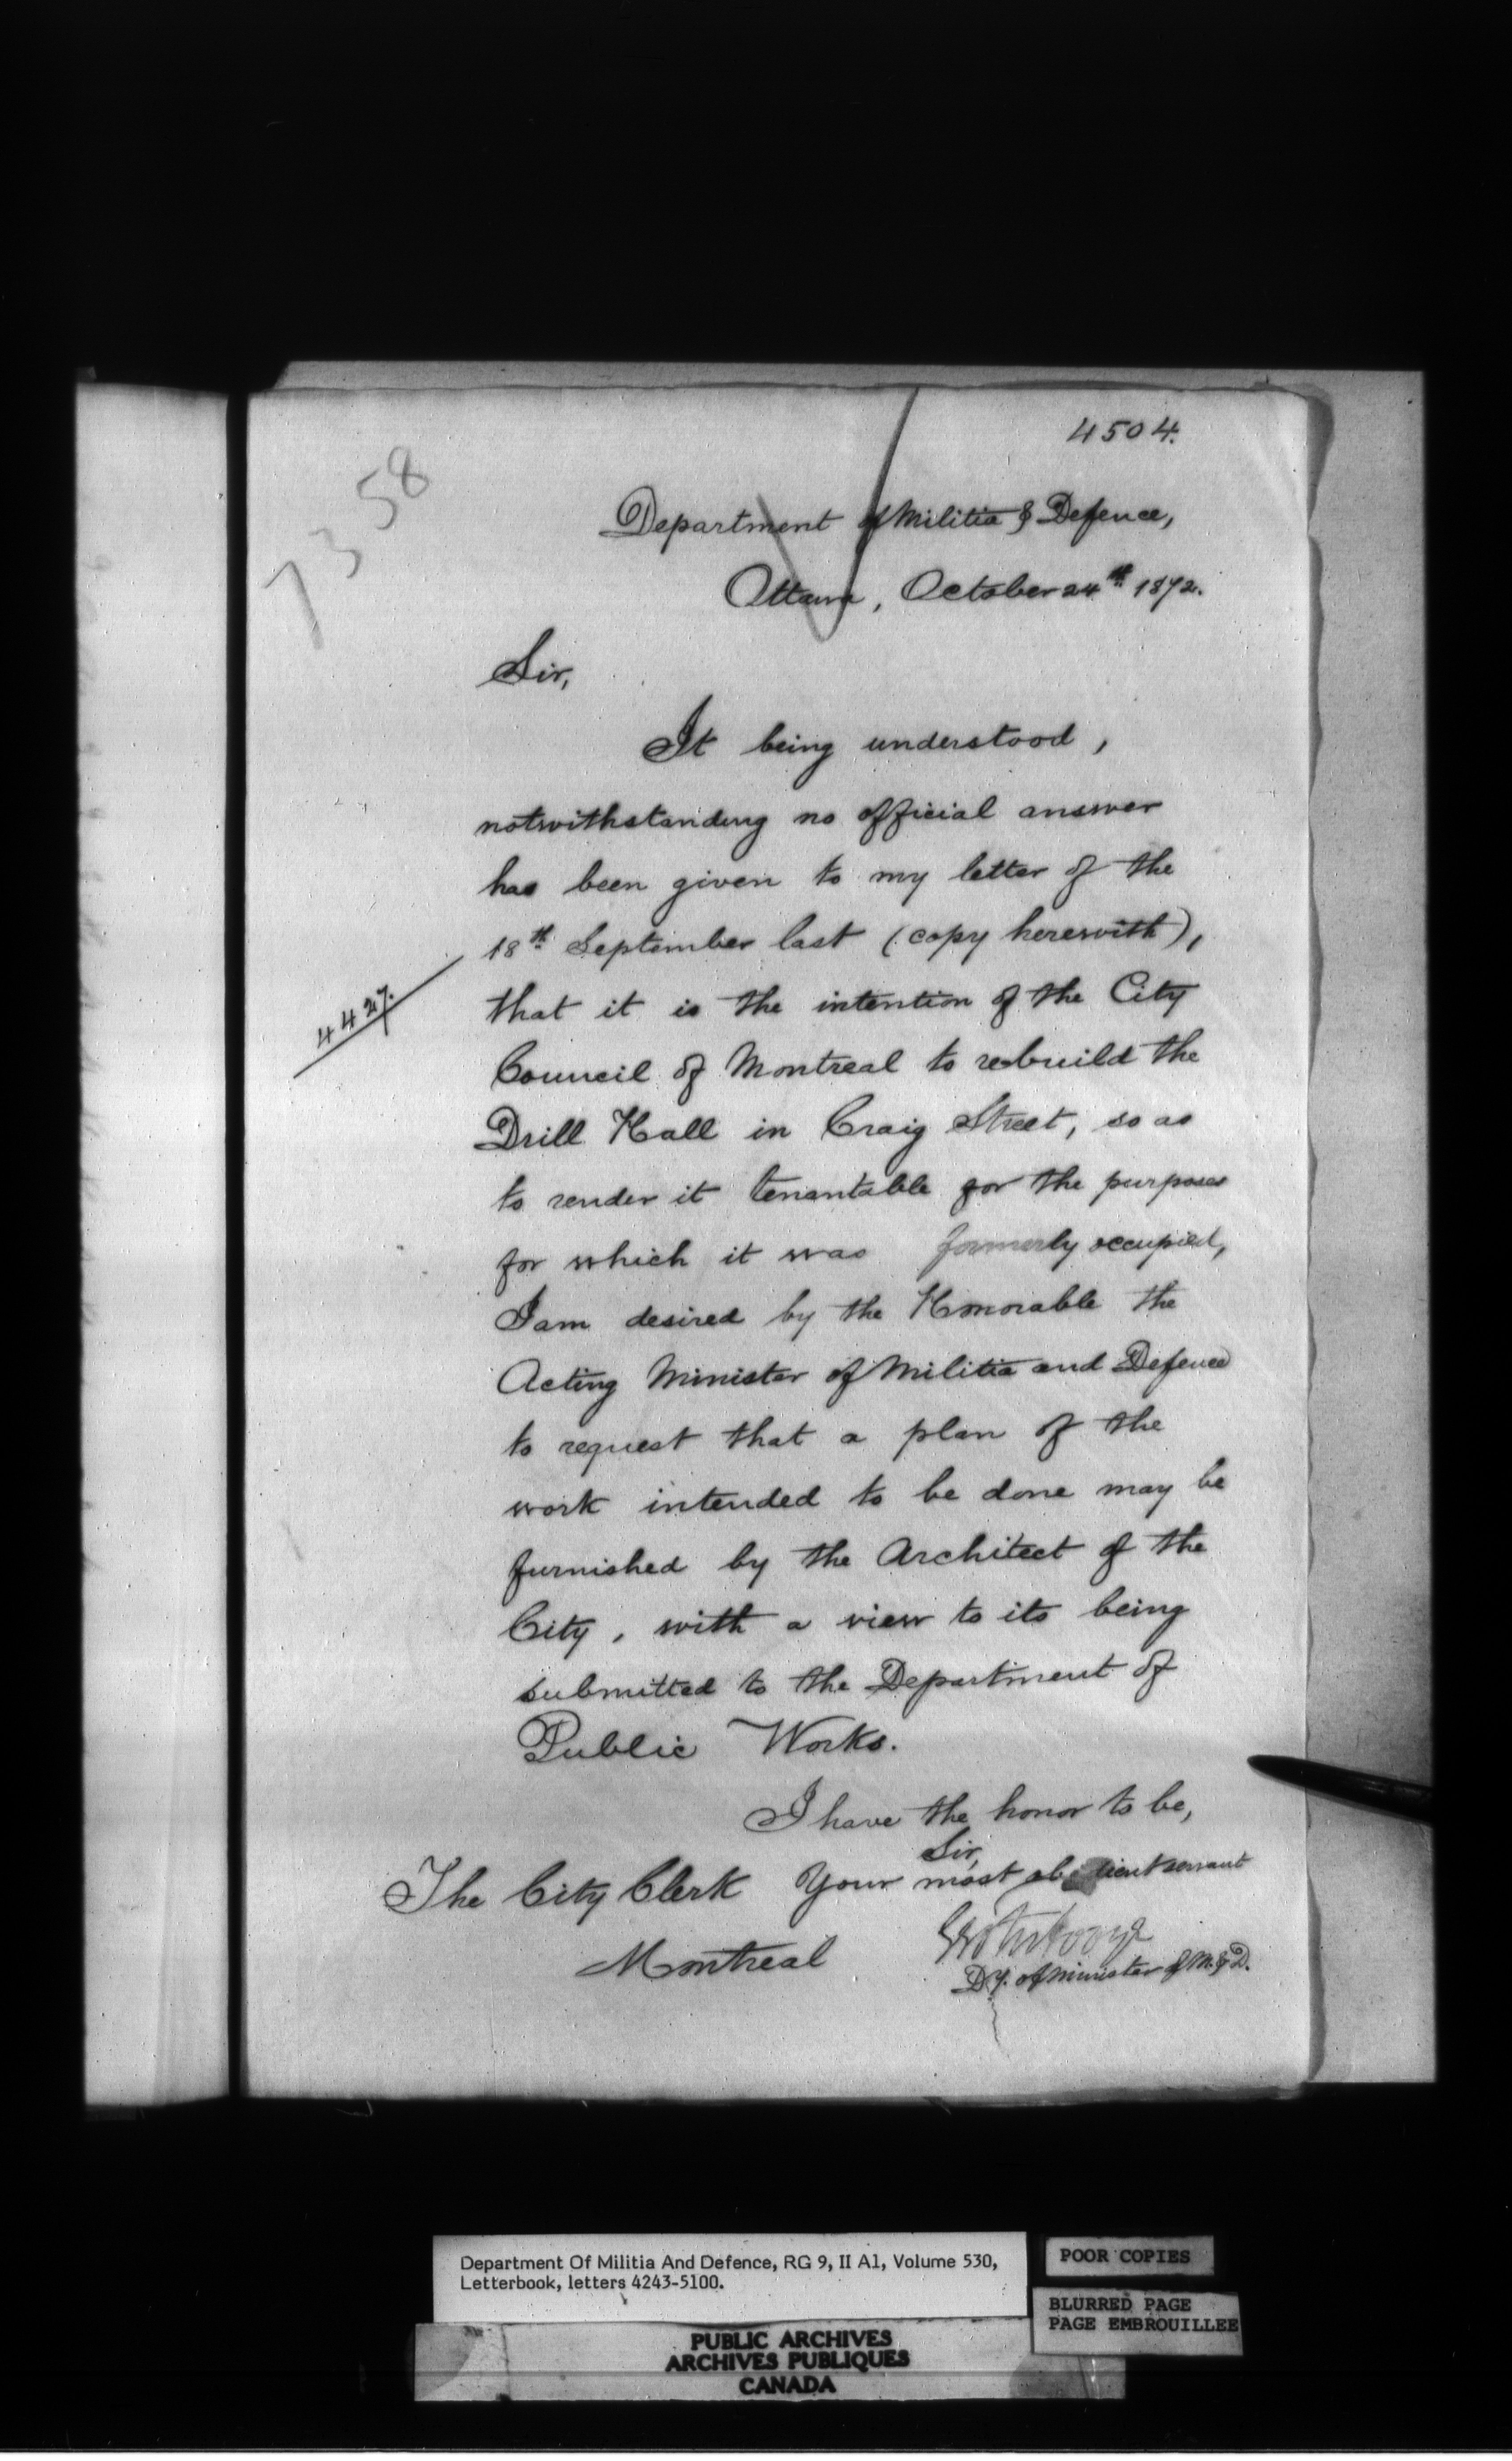 4504.
7358
Department of Militia & Defence,
Ottawa, October 24th 1872.
Sir,
It being understood,
notwithstanding no official answer
has been given to my letter of the
18th September last (copy herewith),
4427.
that it is the intention of the City
Council of Montreal to rebuild the
Drill Hall in Craig Street, so as
to render it tenantable for the purposes
for which it was formerly occupied,
I am desired by the Honorable the
Acting Minister of Militia and Defence
to request that a plan of the
work intended to be done may be
furnished by the Architect of the
City, with a view to its being
submitted to the Department of
Public Works.
I have the honor to be,
Sir,
Your most obedient servant
The City Clerk
Montreal
Dy. of Minister of M. & D.
Department Of Militia And Defence, RG 9, II A1, Volume 530,
Letterbook, letters 4243-5100.
POOR COPIES
BLURRED PAGE
PAGE EMBROUILLEE
PUBLIC ARCHIVES
ARCHIVES PUBLIQUES
CANADA